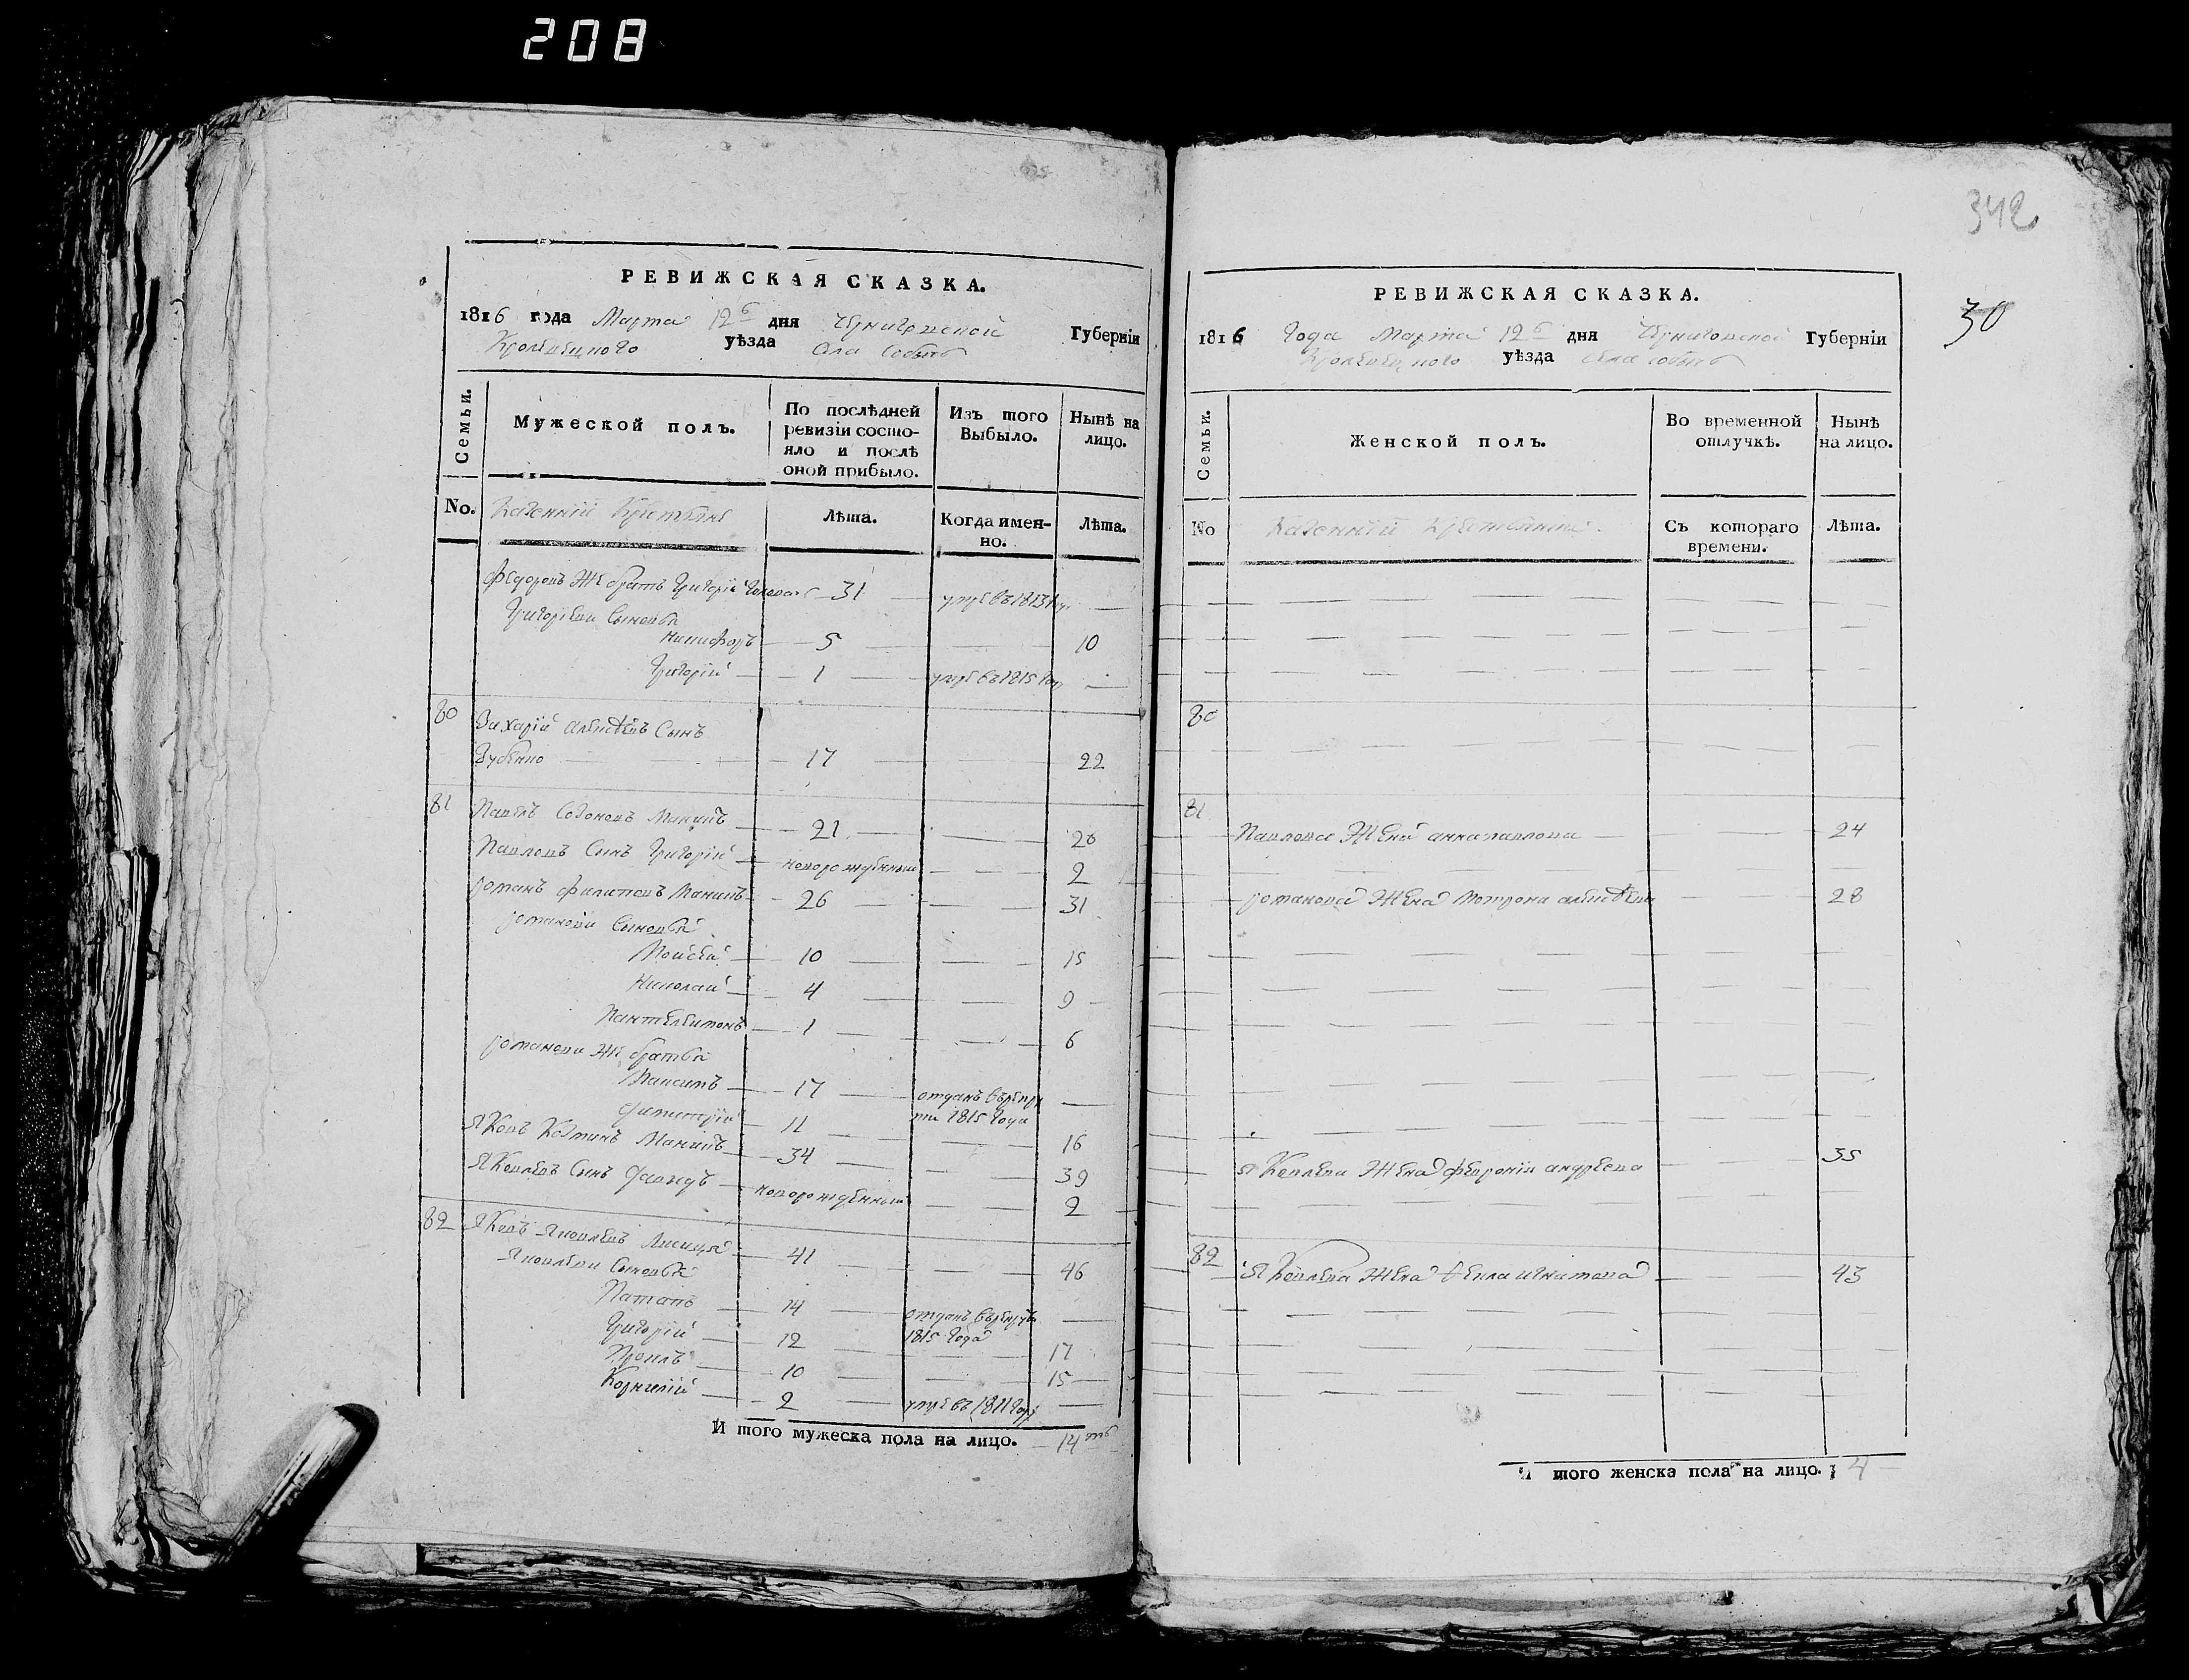 208
342
30
РЕВИЖСКАЯ СКАЗКА.
1816 года Марта 12 дня Черниговской Губерніи
Кролевецкого уѣзда Села
Семьи.
Мужеской полъ.
По послѣдней ревизіи состояло и послѣ оной прибыло.
Изъ того Выбыло.
Нынѣ на лицо.
No. Казенніи Крестьяне
Лѣта.
Когда именно.
Лѣта.
Федоровъ Же братъ Григорій 31 умре въ 1813 году —
Григорьеви Сыновья
Никифоръ — 5 — 10
Григорій — 1 — умре въ 1815 году —
80 Захарій Алексѣевъ Сынъ
Зубенко — 17 — 22
81 Павелъ Созоновъ — 21 — 26
Павловъ Сынъ Григорій — новорожденный — 2
Романъ Филиповъ — 26 — 31
Романови Сыновья
Мойсей — 10 — 15
Николай — 4 — 9
Пантелеимонъ — 1 — 6
Романови Же братья
Максимъ — 17 — отданъ въ рекру
ти 1815 Года —
Димитрій 11 — 16
Яковъ Козминъ — 34 — 39
Яковлевъ Сынъ Давидъ — новорожденный — 2
82 Яковъ Яковлевъ Лисица — 41 — 46
Яковлеви Сыновья
Потапъ — 14 — отданъ въ рекруты —
1815 Года
Григорій — 12 — 17
10 — 15
Корнилій — 2 — умре въ 1811 Году —
И того мужеска пола на лицо. — 14
РЕВИЖСКАЯ СКАЗКА.
1816 Года Марта 12 дня Черниговской Губерніи
Кролевецкого уѣзда Села
Семьи.
Женской полъ.
Во временной отлучкѣ.
Нынѣ на лицо.
No Казенніи Крестьянки.
Съ котораго времени.
Лѣта.
80
81
Павлова Жена Анна Павлова — 24
Романова Жена Мотрона Алексѣева — 28
Яковлева Жена Феврониія Андреева 35
82 Яковлева Жена Ѳекла Игнатова — 43
И того женска пола на лицо. 4 —